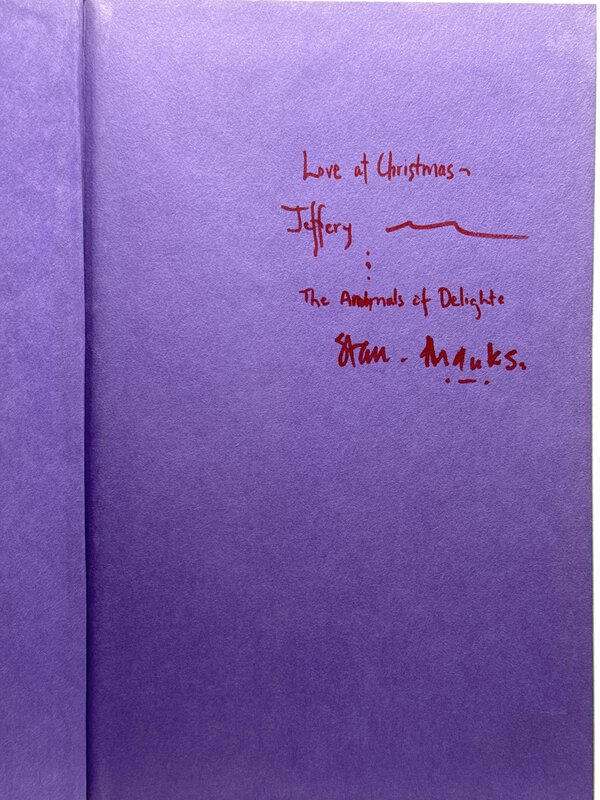 Love at Christmas~
Jeffery
The Animals of Delighte
Stan. Thanks.